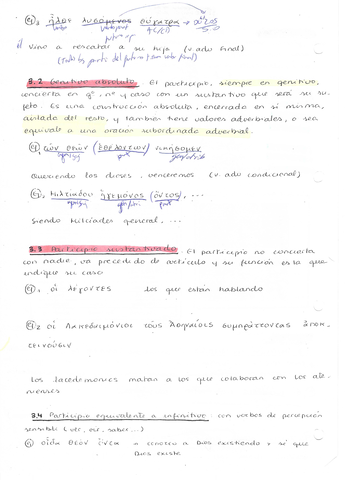 ej, ἦλθον λυσόμενος θύγατρα → αὐτός
verbo
CD/CI
Vino a rescatar a su hija (v. adv final)
(todos los partic. de futuro con valor final)
3.2 Genitivo absoluto. El participio, siempre en genitivo,
concierta en gº, nº y caso con un sustantivo que será su su-
jeto. Es una construcción absoluta, encerrada en sí misma,
aislada del resto, y también tiene valores adverbiales, o sea
equivale a una oración subordinada adverbial.
ej, τῶν θεῶν (ἐθελόντων) νικήσομεν
Queriendo los dioses, venceremos (v. adv condicional)
ej, Μιλτιάδου ἡγεμόνος (ὄντος), ...
Siendo Milciades general. ...
3.3 Participio sustantivado. El participio no concierta
con nadie, va precedido de artículo y su función es la que
indique su caso
ej, οἱ λέγοντες los que están hablando
ej, 2 οἱ Λακεδαιμόνιοι τοὺς Ἀθηναίοις συμπράττοντας ἀποκ-
τείνουσιν
Los lacedemonios matan a los que colaboran con los ate-
nienses
3.4 Participio equivalente a infinitivo: con verbos de percepción
sensible (ver, oir, saber...)
ej οἶδα θεὸν ὄντα = conozco a Dios existiendo = sé que
Dios existe